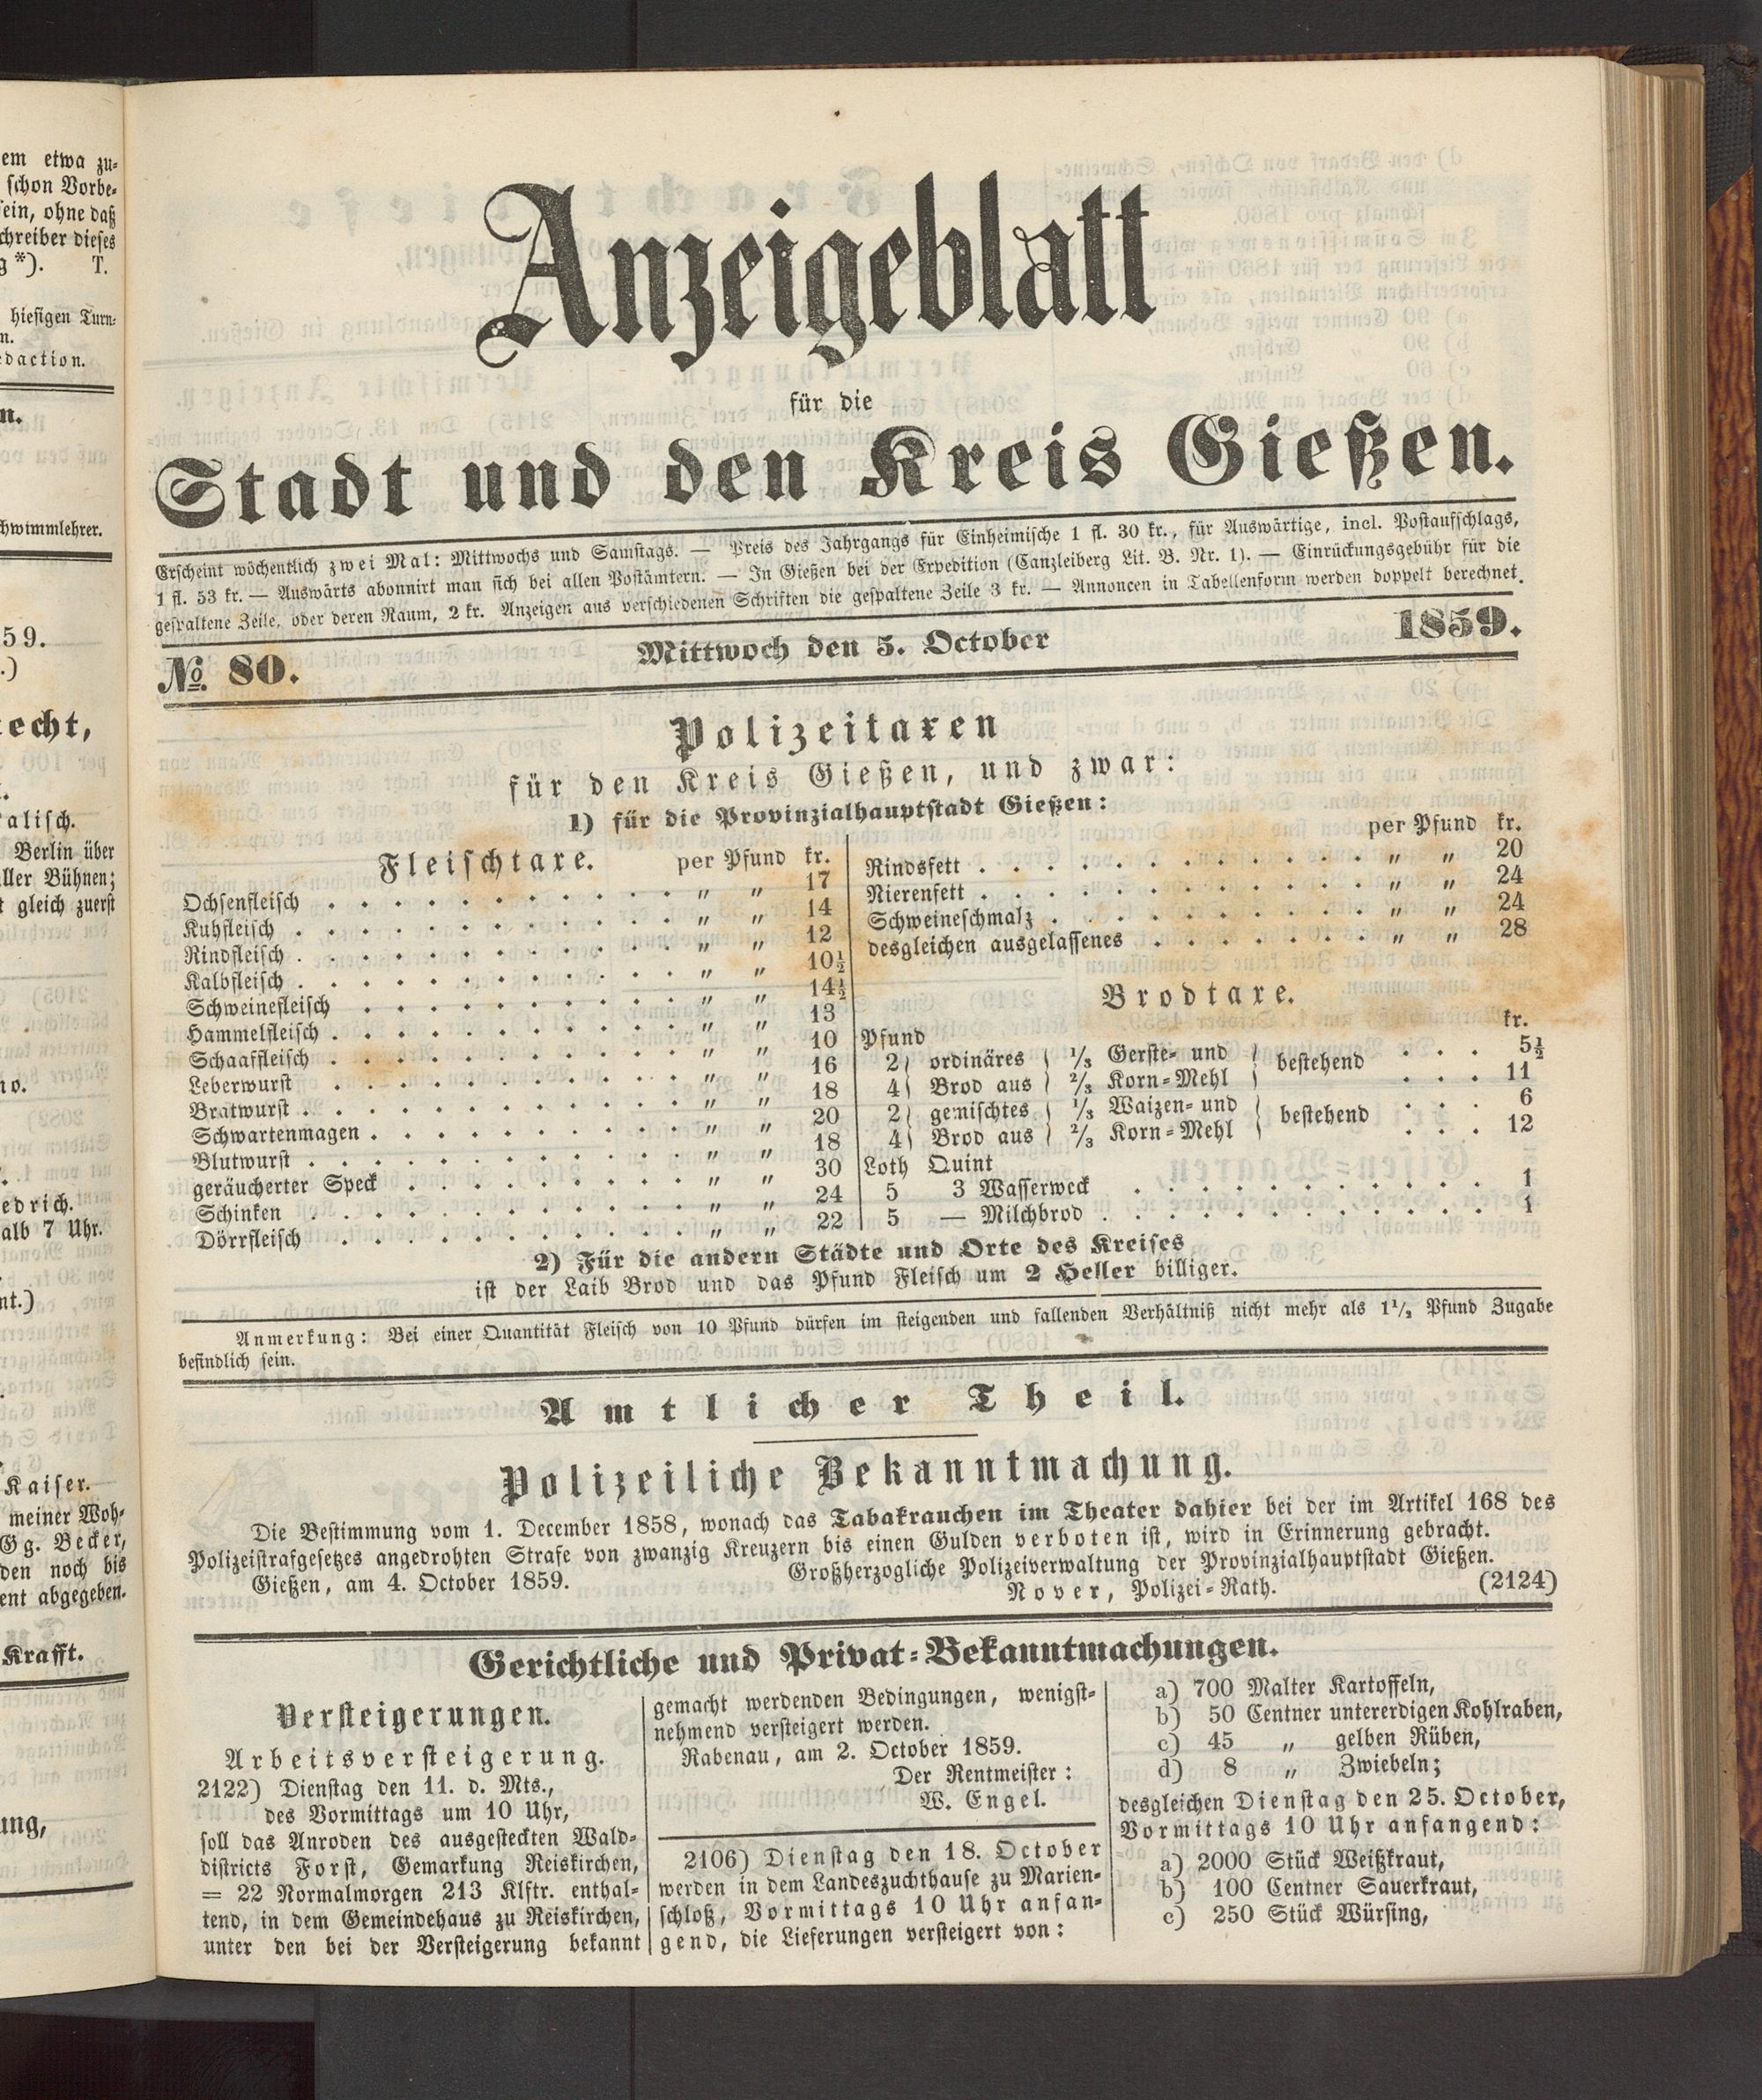 em etwa zu-
schon Vorbe-
sein, ohne daß
chreiber dieses
g *). T.
hiesigen Turn-
n.
edaction.
n.
chwimmlehrer.
59.
.)
echt,
alisch.
Berlin über
ller Bühnen;
t gleich zuerst
no.
edrich.
alb 7 Uhr.
nt.)
Kaiser.
meiner Woh-
Gg. Becker,
den noch bis
ent abgegeben.
Krafft.
ung,
Anzeigeblatt
für die
Stadt und den Kreis Gießen.
Erscheint wöchentlich zwei Mal: Mittwochs und Samstags. — Preis des Jahrgangs für Einheimische 1 fl. 30 kr., für Auswärtige, incl. Postaufschlags,
1 fl. 53 kr. — Auswärts abonnirt man sich bei allen Postämtern. — In Gießen bei der Expedition (Canzleiberg Lit. B. Nr. 1). — Einrückungsgebühr für die
gespaltene Zeile, oder deren Raum, 2 kr. Anzeigen aus verschiedenen Schriften die gespaltene Zeile 3 kr. — Annoncen in Tabellenform werden doppelt berechnet.
№ 80. Mittwoch den 5. October 1859.
Polizeitaxen
für den Kreis Gießen, und zwar:
1) für die Provinzialhauptstadt Gießen:
Fleischtaxe. per Pfund kr.
Ochsenfleisch . . . . . . . . . . " " 17
Kuhfleisch . . . . . . . . . . " " 14
Rindfleisch . . . . . . . . . . " " 12
Kalbfleisch . . . . . . . . . . " " 10½
Schweinefleisch . . . . . . . . . . " " 14½
Hammelfleisch . . . . . . . . . . " " 13
Schaaffleisch . . . . . . . . . . " " 10
Leberwurst . . . . . . . . . . " " 16
Bratwurst . . . . . . . . . . " " 18
Schwartenmagen . . . . . . . . . . " " 20
Blutwurst . . . . . . . . . . " " 18
geräucherter Speck . . . . . . . . . . " " 30
Schinken . . . . . . . . . . " " 24
Dörrfleisch . . . . . . . . . . " " 22
per Pfund kr.
Rindsfett . . . . . . . . . . " " 20
Nierenfett . . . . . . . . . . " " 24
Schweineschmalz . . . . . . . . . . " " 24
desgleichen ausgelassenes . . . . . . . " " 28
Brodtaxe.
kr.
Pfund
2} ordinäres { 1/3 Gerste- und } bestehend . . . 5½
4} Brod aus { 2/3 Korn-Mehl } . . . 11
2} gemischtes { 1/3 Waizen- und } bestehend . . . 6
4} Brod aus { 2/3 Korn-Mehl } . . . 12
Loth Quint
5 3 Wasserweck . . . . . . . . . . 1
5 — Milchbrod . . . . . . . . . . 1
2) Für die andern Städte und Orte des Kreises
ist der Laib Brod und das Pfund Fleisch um 2 Heller billiger.
Anmerkung: Bei einer Quantität Fleisch von 10 Pfund dürfen im steigenden und fallenden Verhältniß nicht mehr als 1½ Pfund Zugabe
befindlich sein.
Amtlicher Theil.
Polizeiliche Bekanntmachung.
Die Bestimmung vom 1. December 1858, wonach das Tabakrauchen im Theater dahier bei der im Artikel 168 des
Polizeistrafgesetzes angedrohten Strafe von zwanzig Kreuzern bis einen Gulden verboten ist, wird in Erinnerung gebracht.
Gießen, am 4. October 1859. Großherzogliche Polizeiverwaltung der Provinzialhauptstadt Gießen.
Nover, Polizei-Rath. (2124)
Gerichtliche und Privat-Bekanntmachungen.
Versteigerungen.
Arbeitsversteigerung.
2122) Dienstag den 11. d. Mts.,
des Vormittags um 10 Uhr,
soll das Anroden des ausgesteckten Wald-
districts Forst, Gemarkung Reiskirchen,
= 22 Normalmorgen 213 Klftr. enthal-
tend, in dem Gemeindehaus zu Reiskirchen,
unter den bei der Versteigerung bekannt
gemacht werdenden Bedingungen, wenigst-
nehmend versteigert werden.
Rabenau, am 2. October 1859.
Der Rentmeister:
W. Engel.
2106) Dienstag den 18. October
werden in dem Landeszuchthause zu Marien-
schloß, Vormittags 10 Uhr anfan-
gend, die Lieferungen versteigert von:
a) 700 Malter Kartoffeln,
b) 50 Centner untererdigen Kohlraben,
c) 45 " gelben Rüben,
d) 8 " Zwiebeln;
desgleichen Dienstag den 25. October,
Vormittags 10 Uhr anfangend:
a) 2000 Stück Weißkraut,
b) 100 Centner Sauerkraut,
c) 250 Stück Würsing,